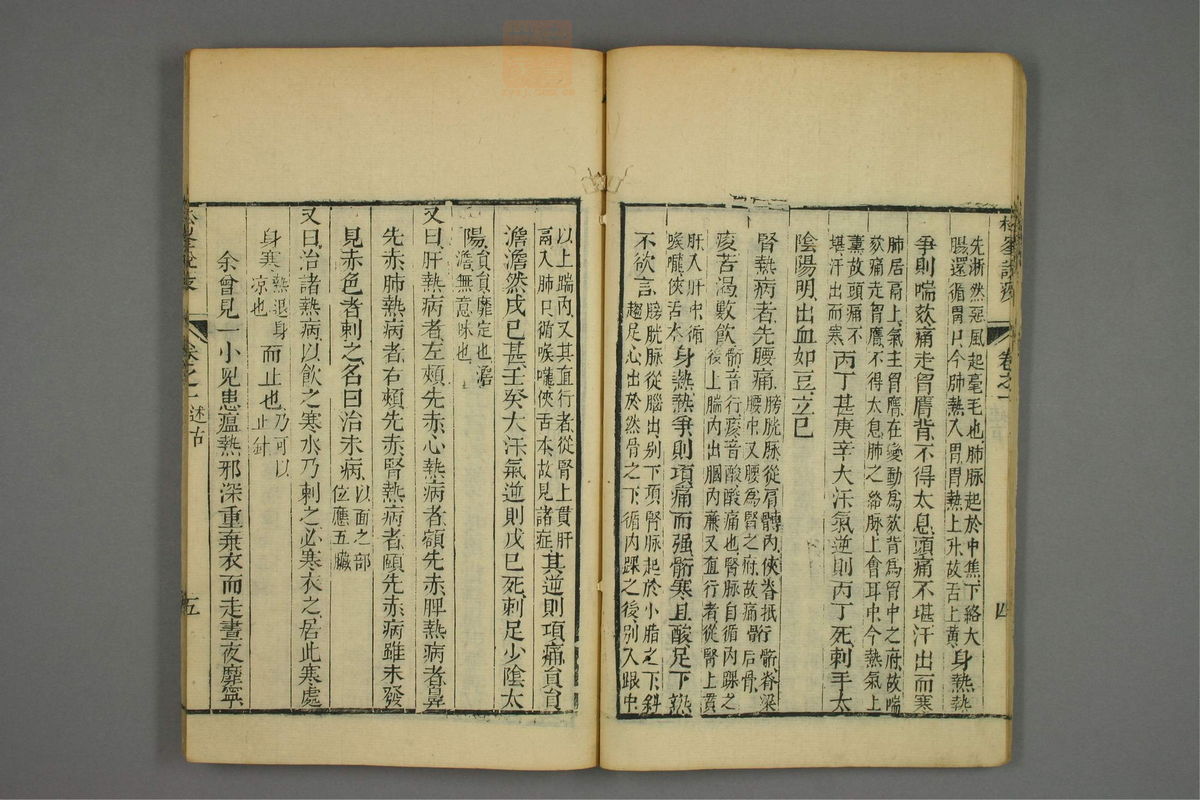 松峯說疫 卷之一 四
先淅然惡風起毫毛也肺脈起於中焦下絡大
腸還循胃口今肺熱入胃胃熱上升故舌上黄
身熱熱
爭則喘欬痛走胷膺背不得太息頭痛不堪汗出而寒
肺居鬲上氣主胷膺在變動爲欬背爲胷中之府故喘
欬痛走胷膺不得太息肺之絡脈上會耳中今熱氣上
薰故頭痛不
堪汗出而寒
丙丁甚庚辛大汗氣逆則丙丁死刺手太
陰陽明出血如豆立已
腎熱病者先腰痛
膀胱脈從肩髆內俠脊抵行骱脊梁
腰中又腰爲腎之府故痛骱后骨
痠苦渴數飲
骱音行痠音酸酸痛也腎脈自循內踝之
後上腨內出膕內亷又直行者從腎上貫
肝入肝中循
喉嚨俠舌本
身熱熱爭則項痛而强骱寒且酸足下熱
不欲言
膀胱脈從腦出别下項腎脈起於小指之下斜
趨足心出於然骨之下循內踝之後别入跟中
以上踹內又其直行者從腎上貫肝
鬲入肺中循喉嚨俠舌本故見諸症
其逆則項痛員員
澹澹然戊已甚壬癸大汗氣逆則戊已死刺足少陰太
陽
員員靡定也澹
澹無意味也
又曰肝熱病者左頰先赤心熱病者額先赤脾熱病者鼻
先赤肺熱病者右頰先赤腎熱病者頤先赤病雖未發
見赤色者刺之名曰治未病
以面之部
位應五臟
又曰治諸熱病以飲之寒水乃刺之必寒衣之居此寒處
身寒
熱退身
凉也
而止也
乃可以
止針
余曾見一小兒患瘟熱邪深重棄衣而走晝夜靡寧
松峯說疫 卷之一 述古 五